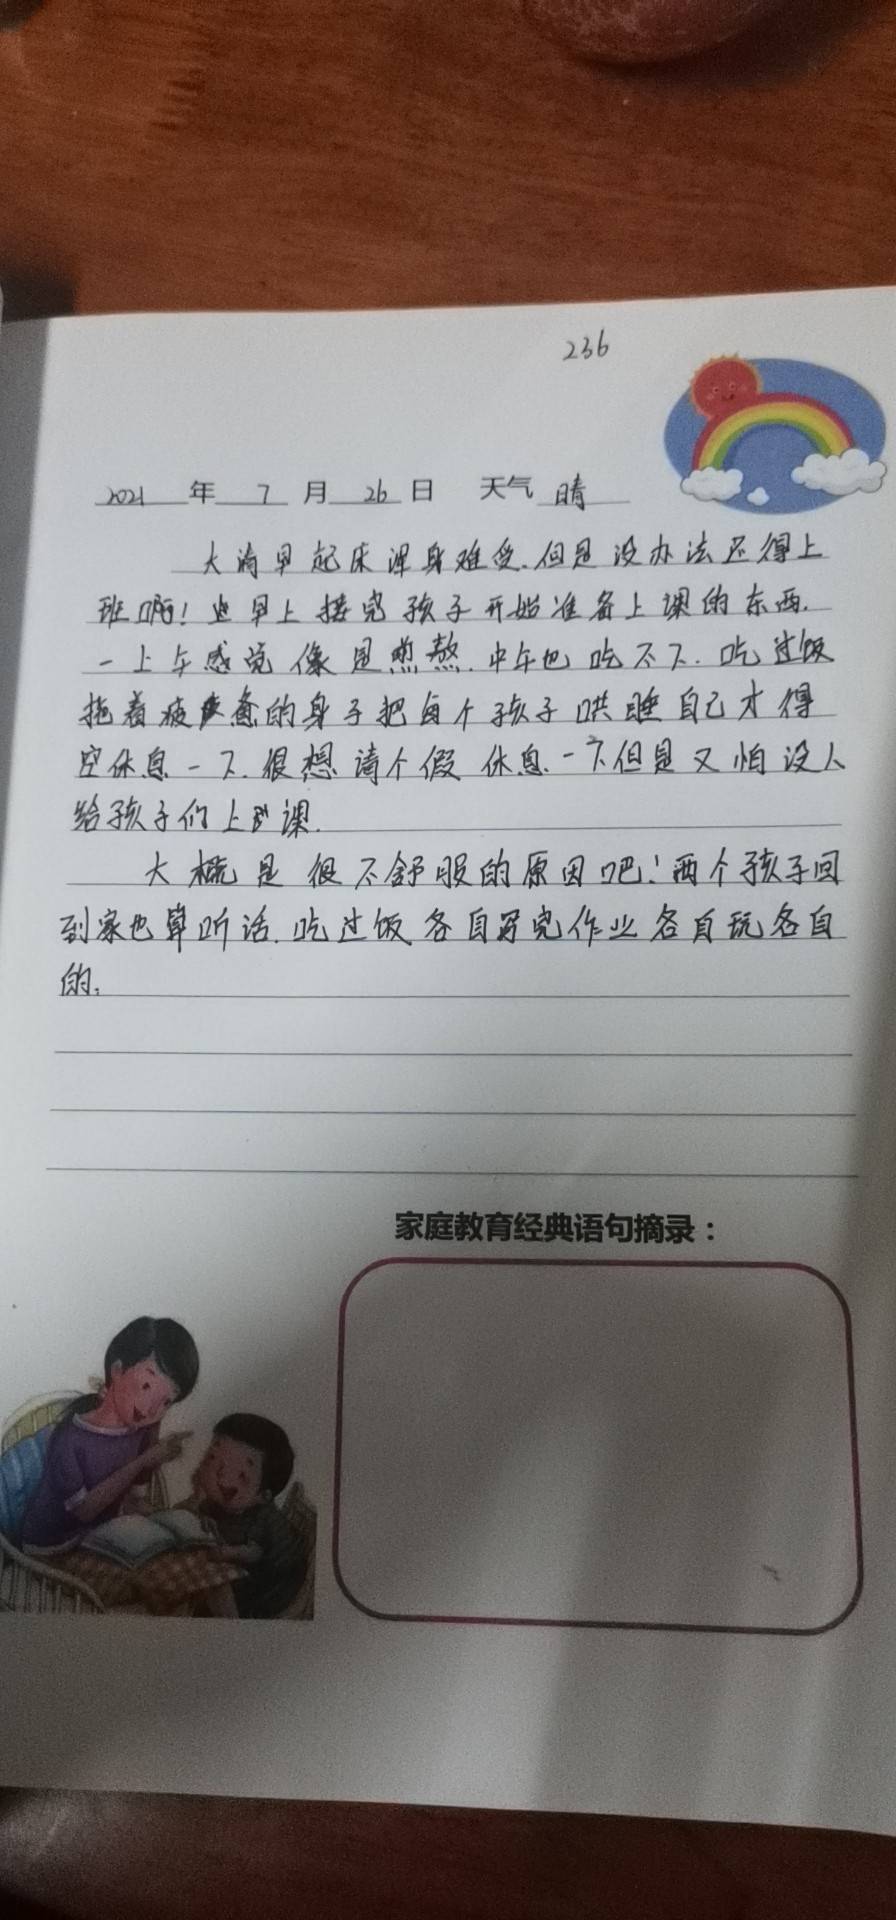 236
2021 年 7 月 26 日 天气 晴
大清早起床浑身难受.但是没办法还得上
班啊!早上接完孩子开始准备上课的东西.
一上午感觉像是煎熬.中午也吃不下.吃过饭
拖着疲惫的身子把每个孩子哄睡自己才得
空休息一下.很想请个假休息一下.但是又怕没人
给孩子们上课.
大概是很不舒服的原因吧!两个孩子回
到家也算听话.吃过饭各自写完作业各自玩各自
的.
家庭教育经典语句摘录：